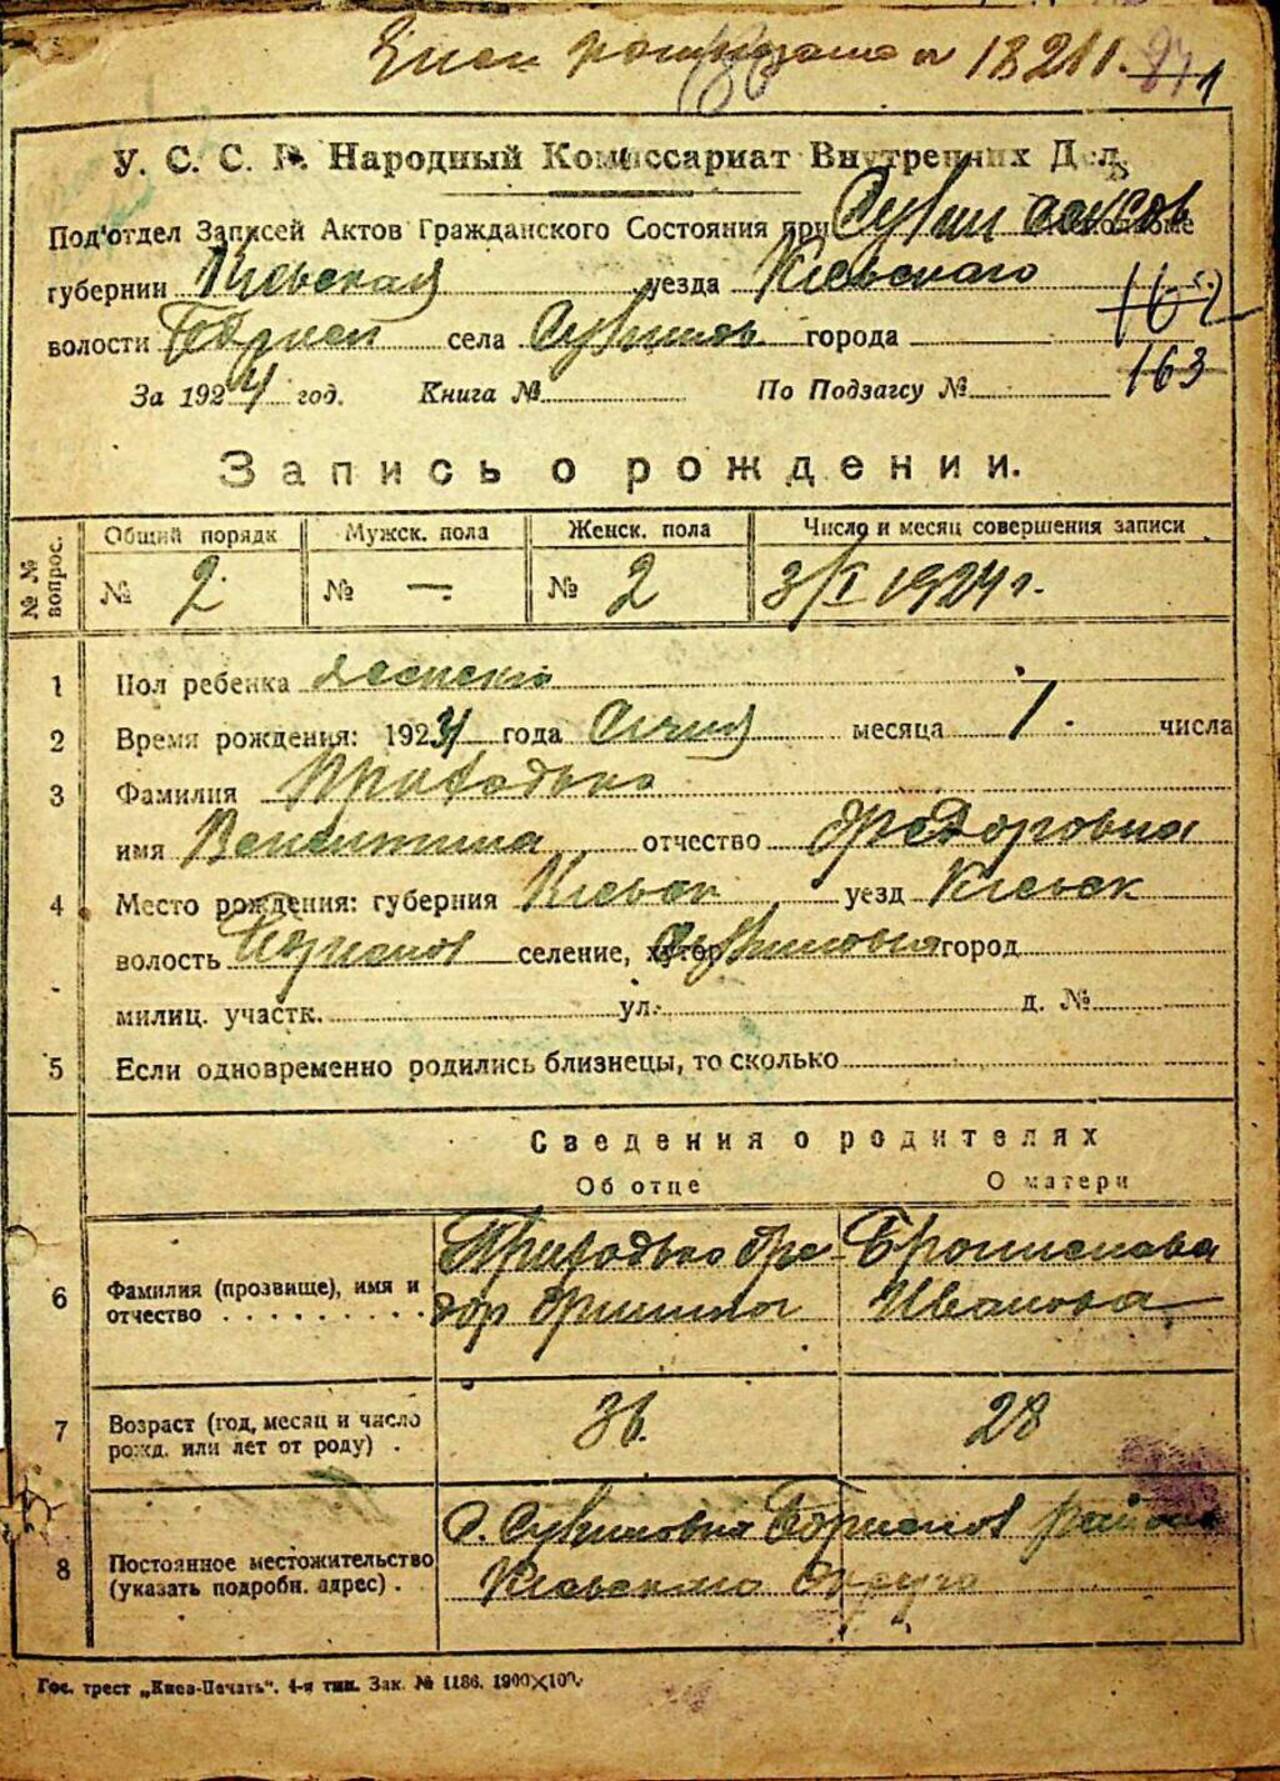 18211.
У. С. С. Р. Народный Комиссариат Внутренних Дел
Под'отдел Записей Актов Гражданского Состояния при
губернии Киевская уезда Киевского 162
волости села города
За 1924 год. Книга № По Подзагсу № 163
Запись о рождении.
№ № вопрос. Общий порядк Мужск. пола Женск. пола Число и месяц совершения записи
№ 2 № — № 2 3/I 1924 г.
1 Пол ребенка женский
2 Время рождения: 1924 года Січня месяца 1 числа
3 Фамилия Приходько
имя Валентина отчество Федоровна
4 Место рождения: губерния Киевск уезд Киевск
волость селение, хутор город
милиц. участк. ул. д. №
5 Если одновременно родились близнецы, то сколько
Сведения о родителях
Об отце О матери
6 Фамилия (прозвище), имя и отчество Приходько Федор Бронислава Иванова
7 Возраст (год, месяц и число рожд. или лет от роду) 36. 28
8 Постоянное местожительство (указать подробн. адрес) района
Киевского Округа
Гос. трест „Киев-Печать". 4-я тип. Зак. № 1186. 1900×100.